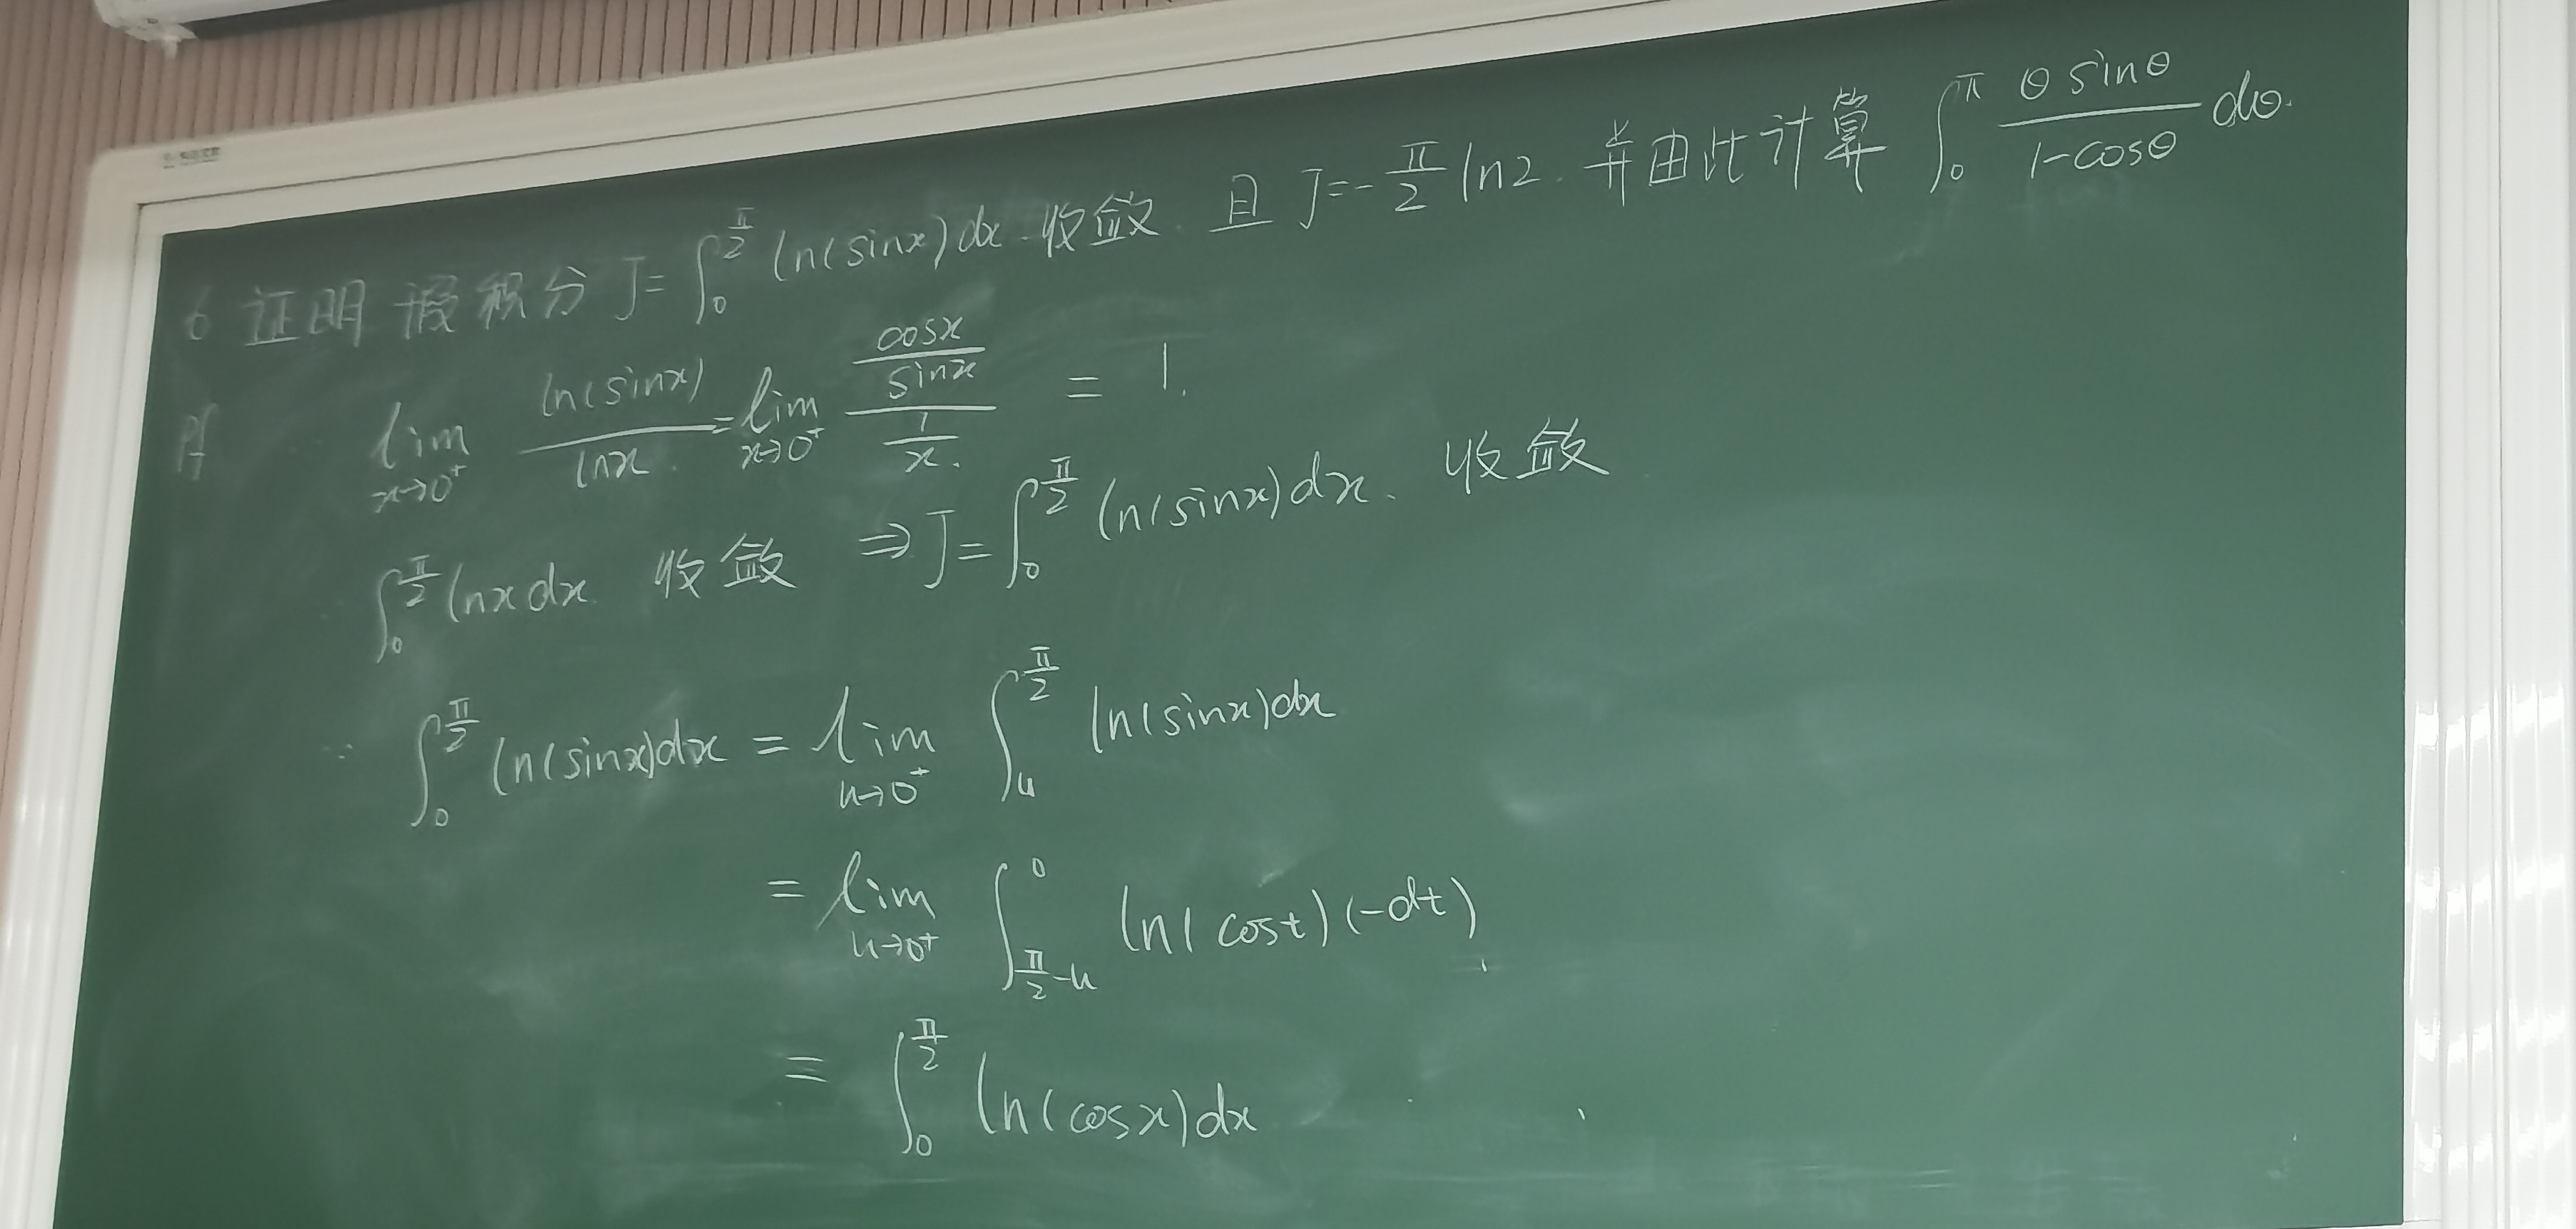 6 证明 瑕积分 J = ∫₀^{π/2} ln(sinx)dx 收敛. 且 J = -π/2 ln2. 并由此计算 ∫₀^π (θ sinθ)/(1-cosθ) dθ.
Pf lim_{x→0⁺} ln(sinx)/lnx = lim_{x→0⁺} (cosx/sinx)/(1/x) = 1.
∫₀^{π/2} lnx dx 收敛 ⇒ J = ∫₀^{π/2} ln(sinx)dx. 收敛
∵ ∫₀^{π/2} ln(sinx)dx = lim_{u→0⁺} ∫_u^{π/2} ln(sinx)dx
= lim_{u→0⁺} ∫_{π/2-u}^0 ln(cost)(-dt)
= ∫₀^{π/2} ln(cosx)dx